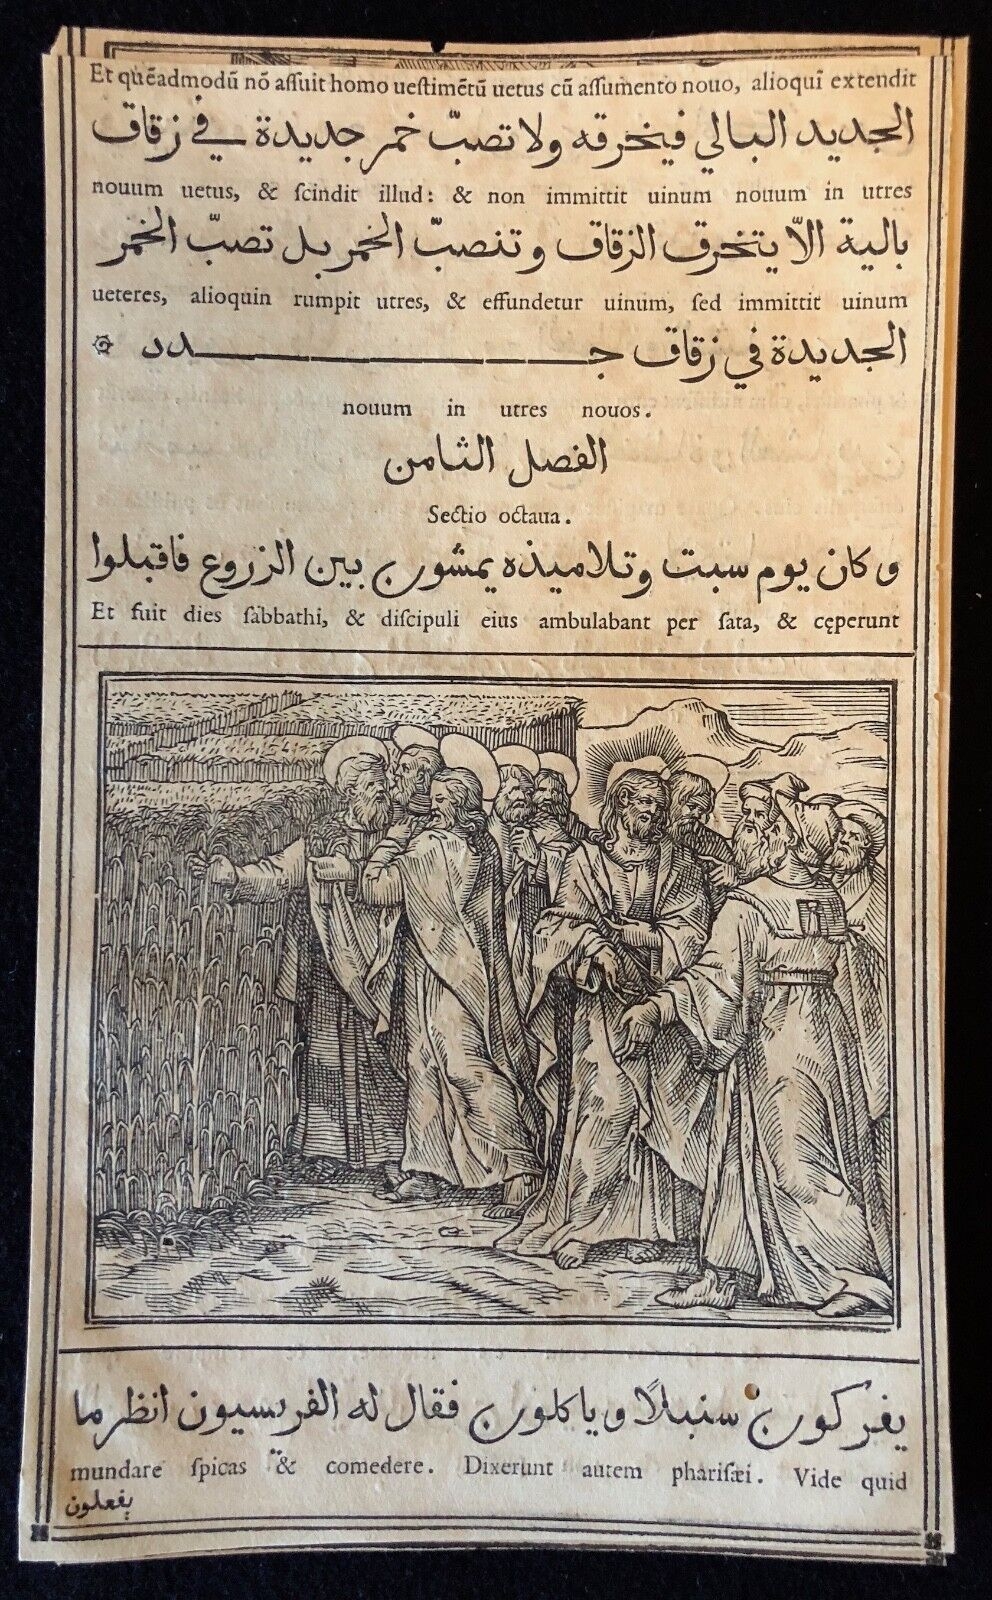 Et quēadmodū nō assuit homo uestimētū uetus cū assumento nouo, alioqui extendit
الجديد البالي فيخرقه ولا تصبّ خمر جديدة في زقاق
nouum uetus, & scindit illud: & non immittit uinum nouum in utres
بالية الاّ يتخرق الزقاق وتنصبّ الخمر بل تصبّ الخمر
ueteres, alioquin rumpit utres, & effundetur uinum, sed immittit uinum
الجديدة في زقاق جـــدد
nouum in utres nouos.
الفصل الثامن
Sectio octaua.
وكان يوم سبت وتلاميذه يمشون بين الزروع فاقبلوا
Et fuit dies sabbathi, & discipuli eius ambulabant per sata, & cęperunt
يفركون سنبلاً وياكلون فقال له الفريسيون انظر ما
mundare spicas & comedere. Dixerunt autem pharisæi. Vide quid
يفعلون